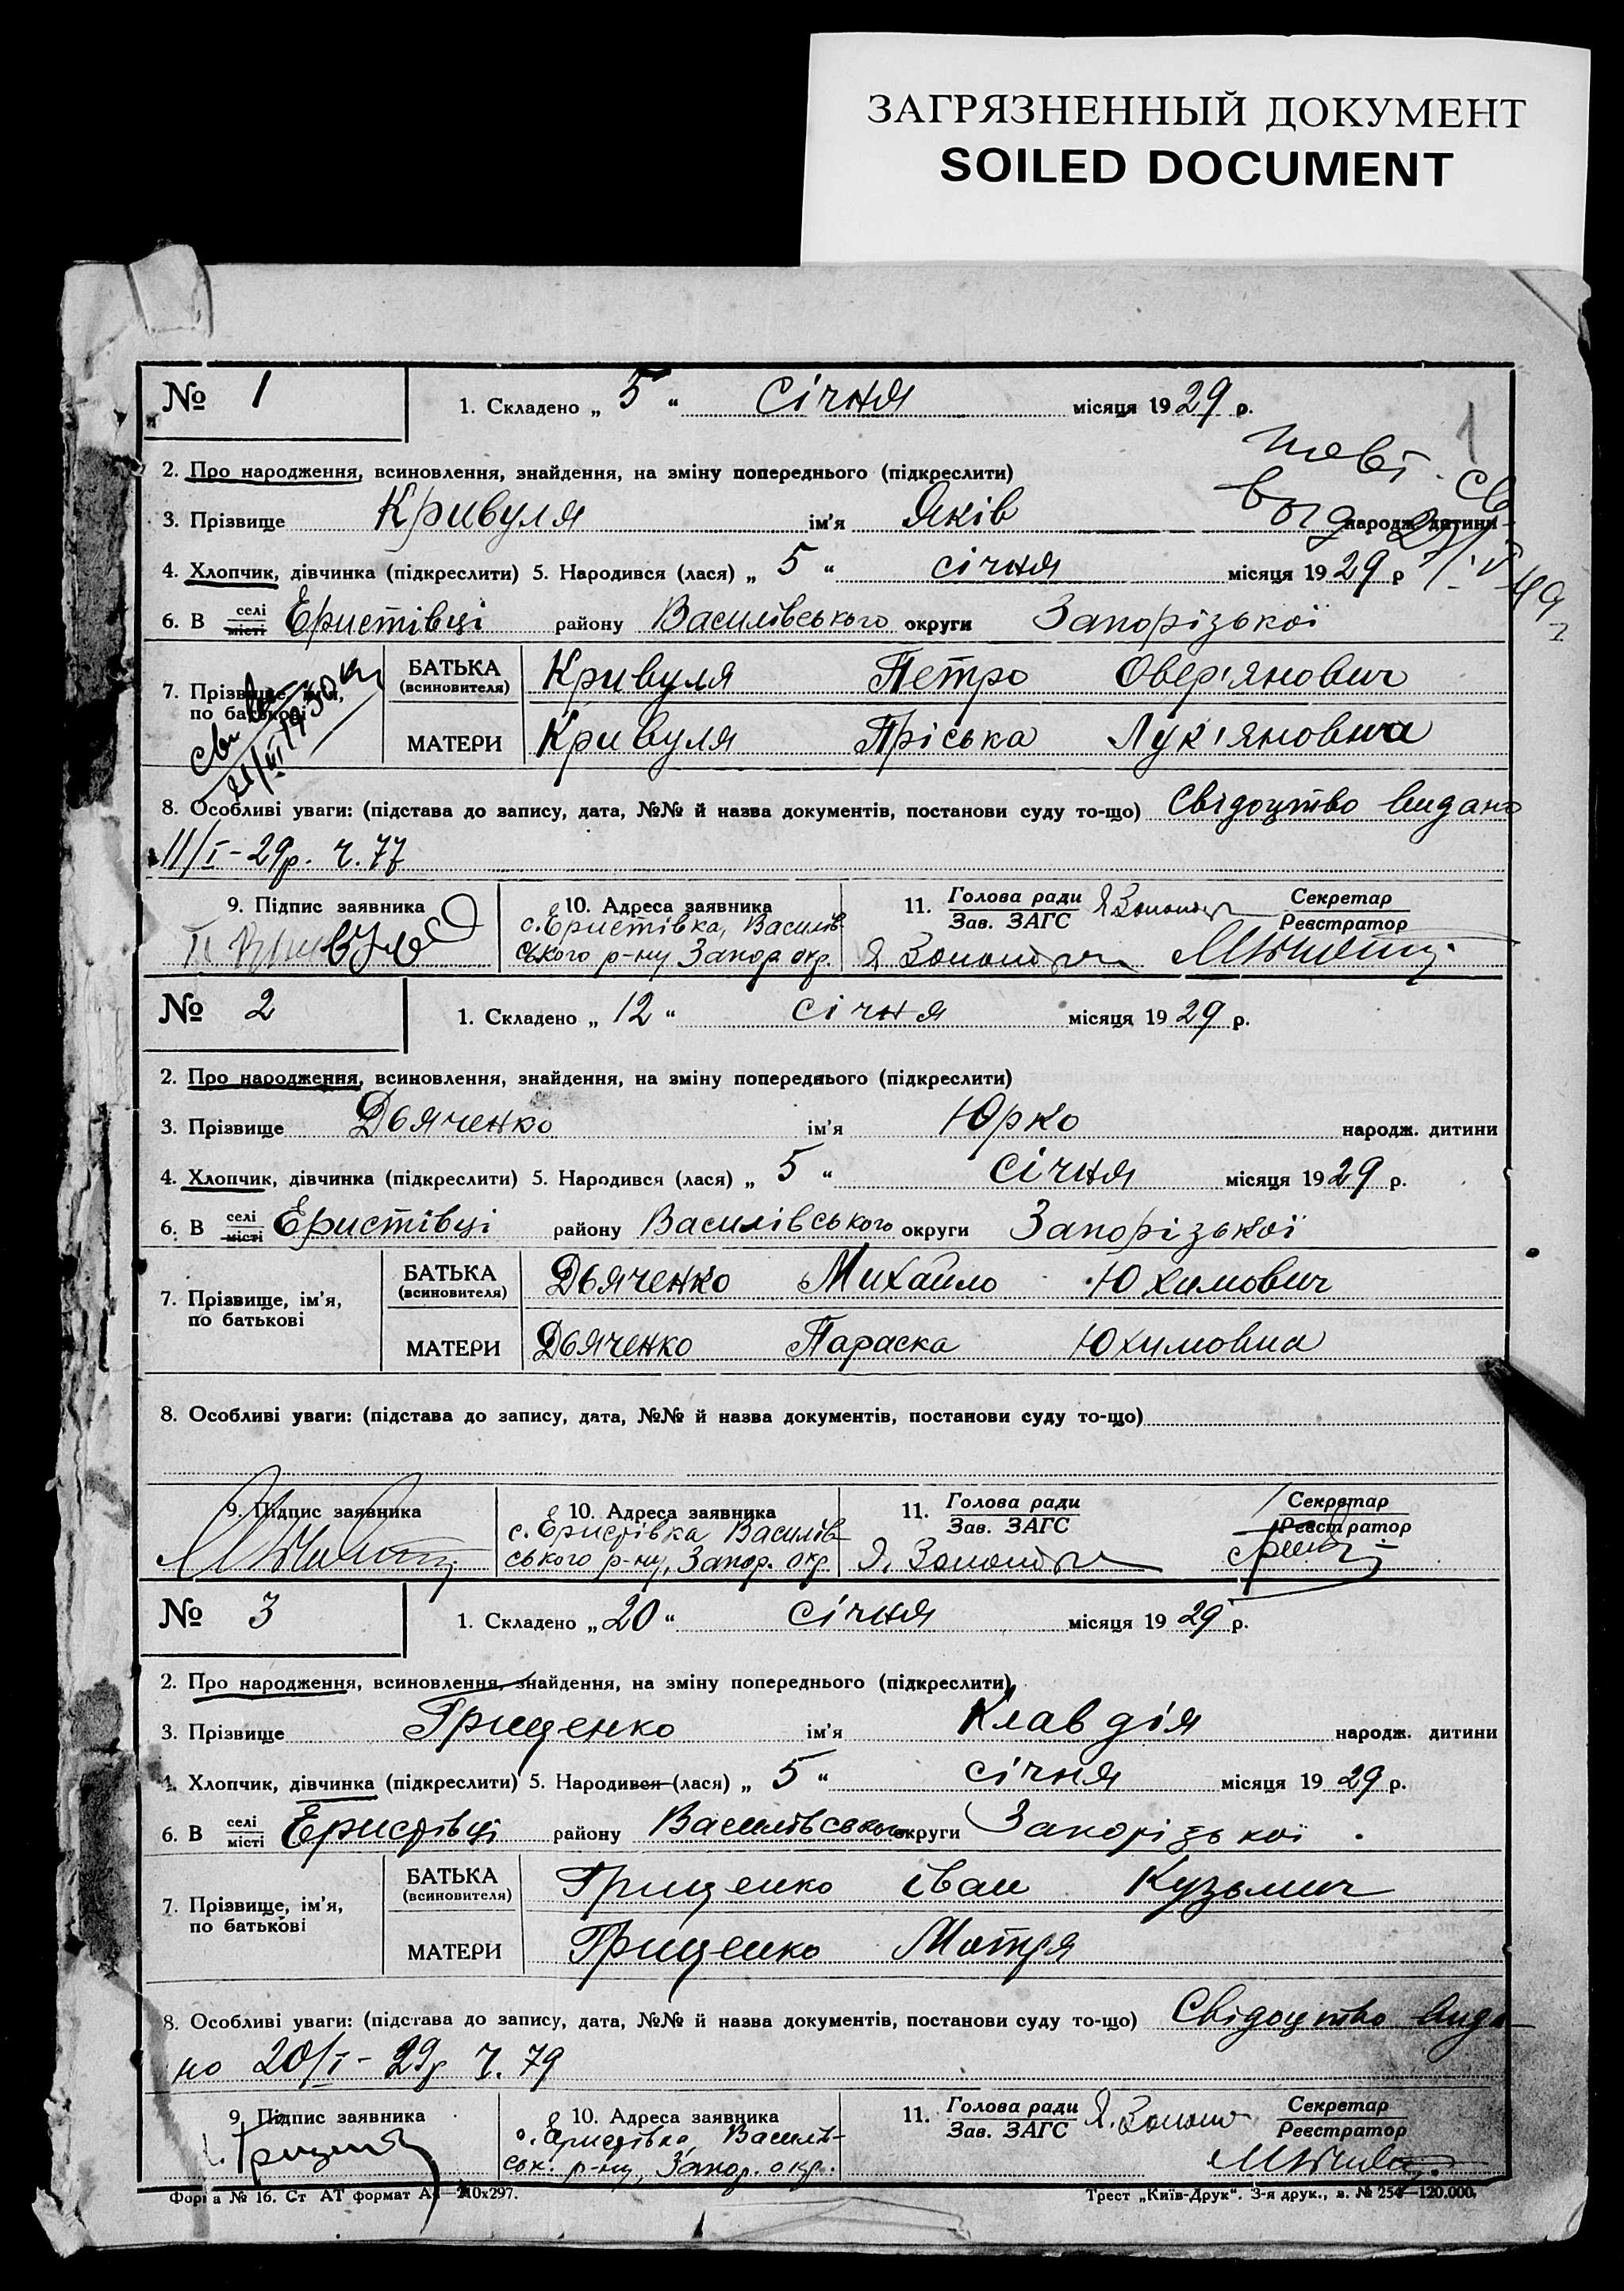 ЗАГРЯЗНЕННЫЙ ДОКУМЕНТ
SOILED DOCUMENT
№ 1
1. Складено „ 5 “ січня місяця 1929 р.
1
2. Про народження, всиновлення, знайдення, на зміну попереднього (підкреслити)
3. Прізвище Кривуля ім’я Яків народж. дитини
4. Хлопчик, дівчинка (підкреслити) 5. Народився (лася) „ 5 “ січня місяця 1929 р
6. В селі місті Еристівці району Василівського округи Запорізької
7. Прізвище, ім’я, по батькові
БАТЬКА (всиновителя) Кривуля Петро Овер'янович
МАТЕРИ Кривуля Пріська Лук'яновна
8. Особливі уваги: (підстава до запису, дата, №№ й назва документів, постанови суду то-що) Свідоцтво видано
11/I-29р. ч. 77
9. Підпис заявника
10. Адреса заявника
с. Еристівка, Василів
ського р-ну Запор. окр.
11. Голова ради Зав. ЗАГС
Секретар Реєстратор
№ 2
1. Складено „ 12 “ січня місяця 1929 р.
2. Про народження, всиновлення, знайдення, на зміну попереднього (підкреслити)
3. Прізвище Дьяченко ім’я Юрко народж. дитини
4. Хлопчик, дівчинка (підкреслити) 5. Народився (лася) „ 5 “ січня місяця 1929 р.
6. В селі місті Еристівці району Василівського округи Запорізької
7. Прізвище, ім’я, по батькові
БАТЬКА (всиновителя) Дьяченко Михайло Юхимович
МАТЕРИ Дьяченко Параска Юхимовна
8. Особливі уваги: (підстава до запису, дата, №№ й назва документів, постанови суду то-що)
9. Підпис заявника
10. Адреса заявника
с. Еристівка Василів
ського р-ну, Запор. окр.
11. Голова ради Зав. ЗАГС
Секретар Реєстратор
№ 3
1. Складено „ 20 “ січня місяця 1929 р.
2. Про народження, всиновлення, знайдення, на зміну попереднього (підкреслити)
3. Прізвище Грищенко ім’я Клавдія народж. дитини
4. Хлопчик, дівчинка (підкреслити) 5. Народився (лася) „ 5 “ січня місяця 1929 р.
6. В селі місті Еристівці району Василівського округи Запорізької
7. Прізвище, ім’я, по батькові
БАТЬКА (всиновителя) Грищенко Іван Кузьмич
МАТЕРИ Грищенко Мотря
8. Особливі уваги: (підстава до запису, дата, №№ й назва документів, постанови суду то-що) Свідоцтво вида
но 20/I-29р ч. 79
9. Підпис заявника
10. Адреса заявника
с. Еристівка, Василів-
ськ. р-ну, Запор. окр.
11. Голова ради Зав. ЗАГС
Секретар Реєстратор
Форма № 16. Ст АТ формат А4—210х297.
Трест „Київ-Друк“. 3-я друк., з. № 254—120.000.